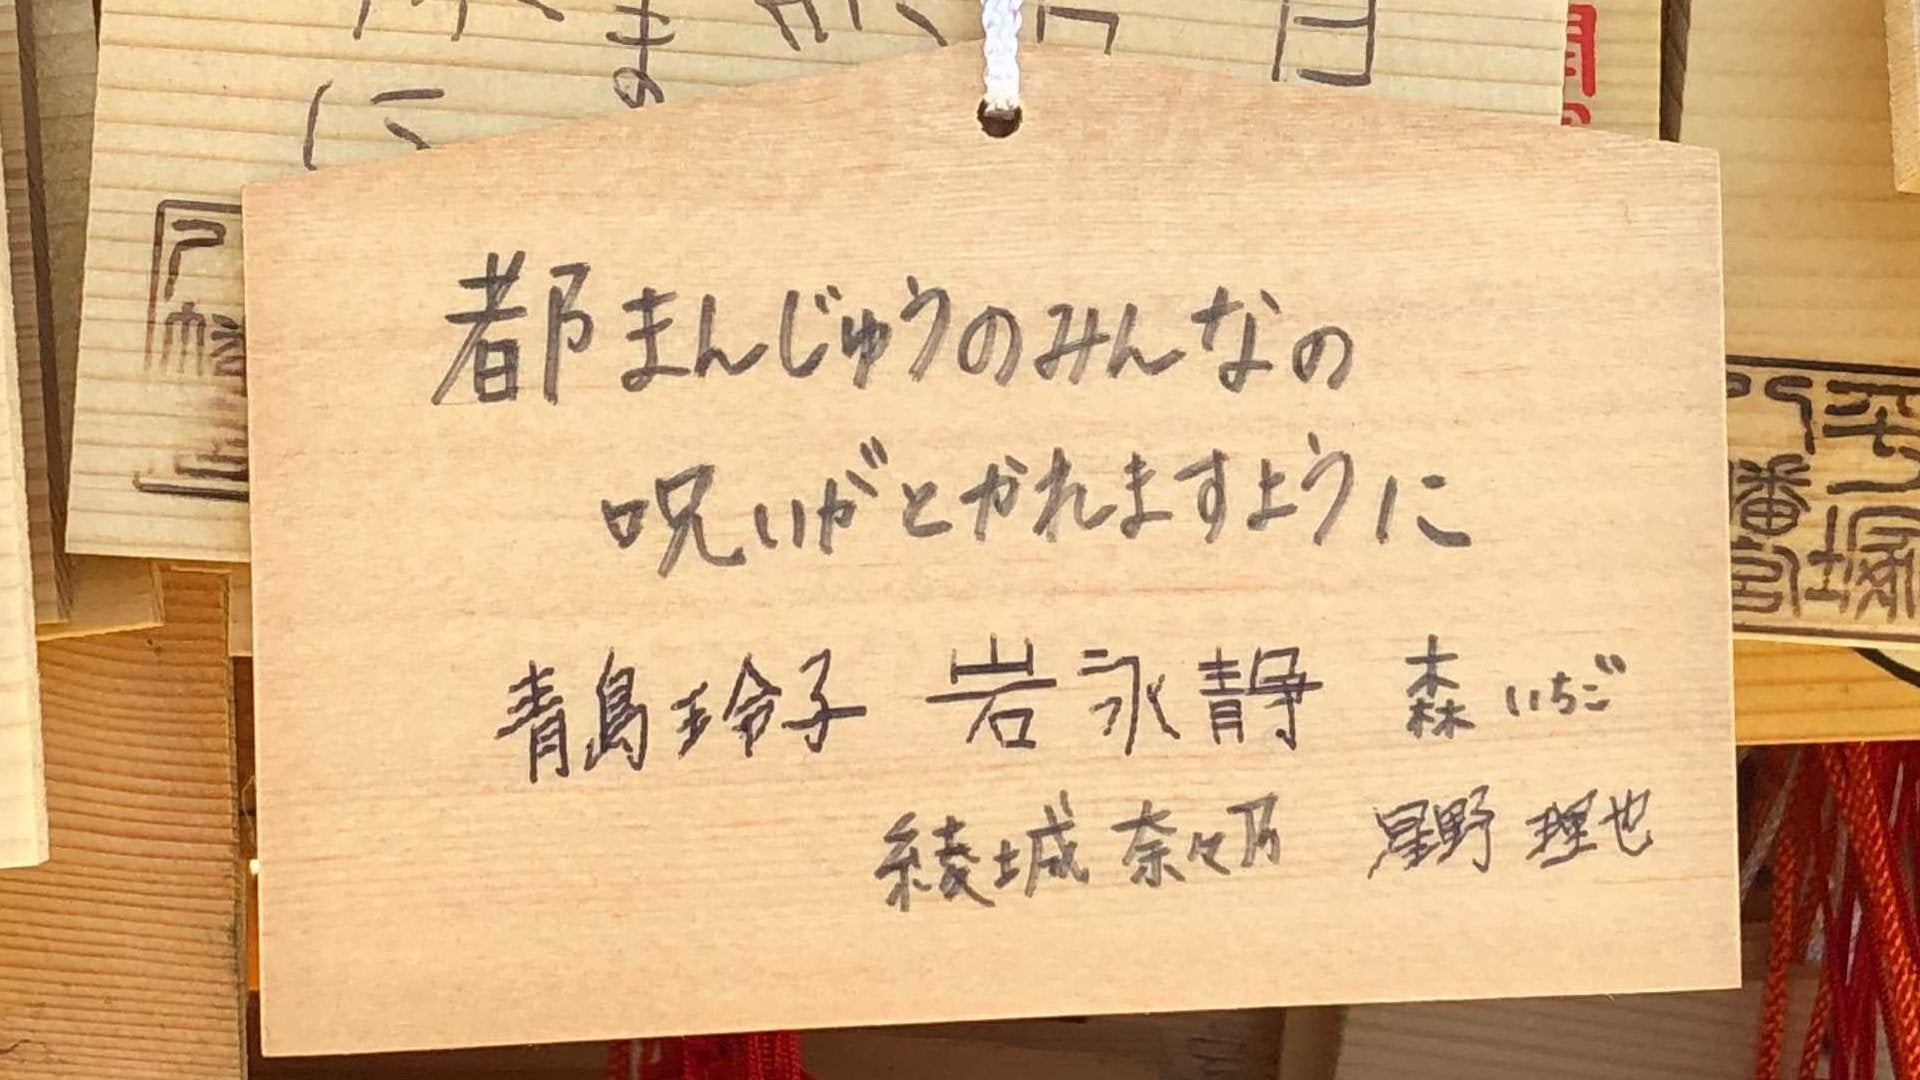 都まんじゅうのみんなの
呪いがとかれますように
青島玲子 岩永静 森いちご
綾城奈々乃 星野理也
平塚
八幡宮